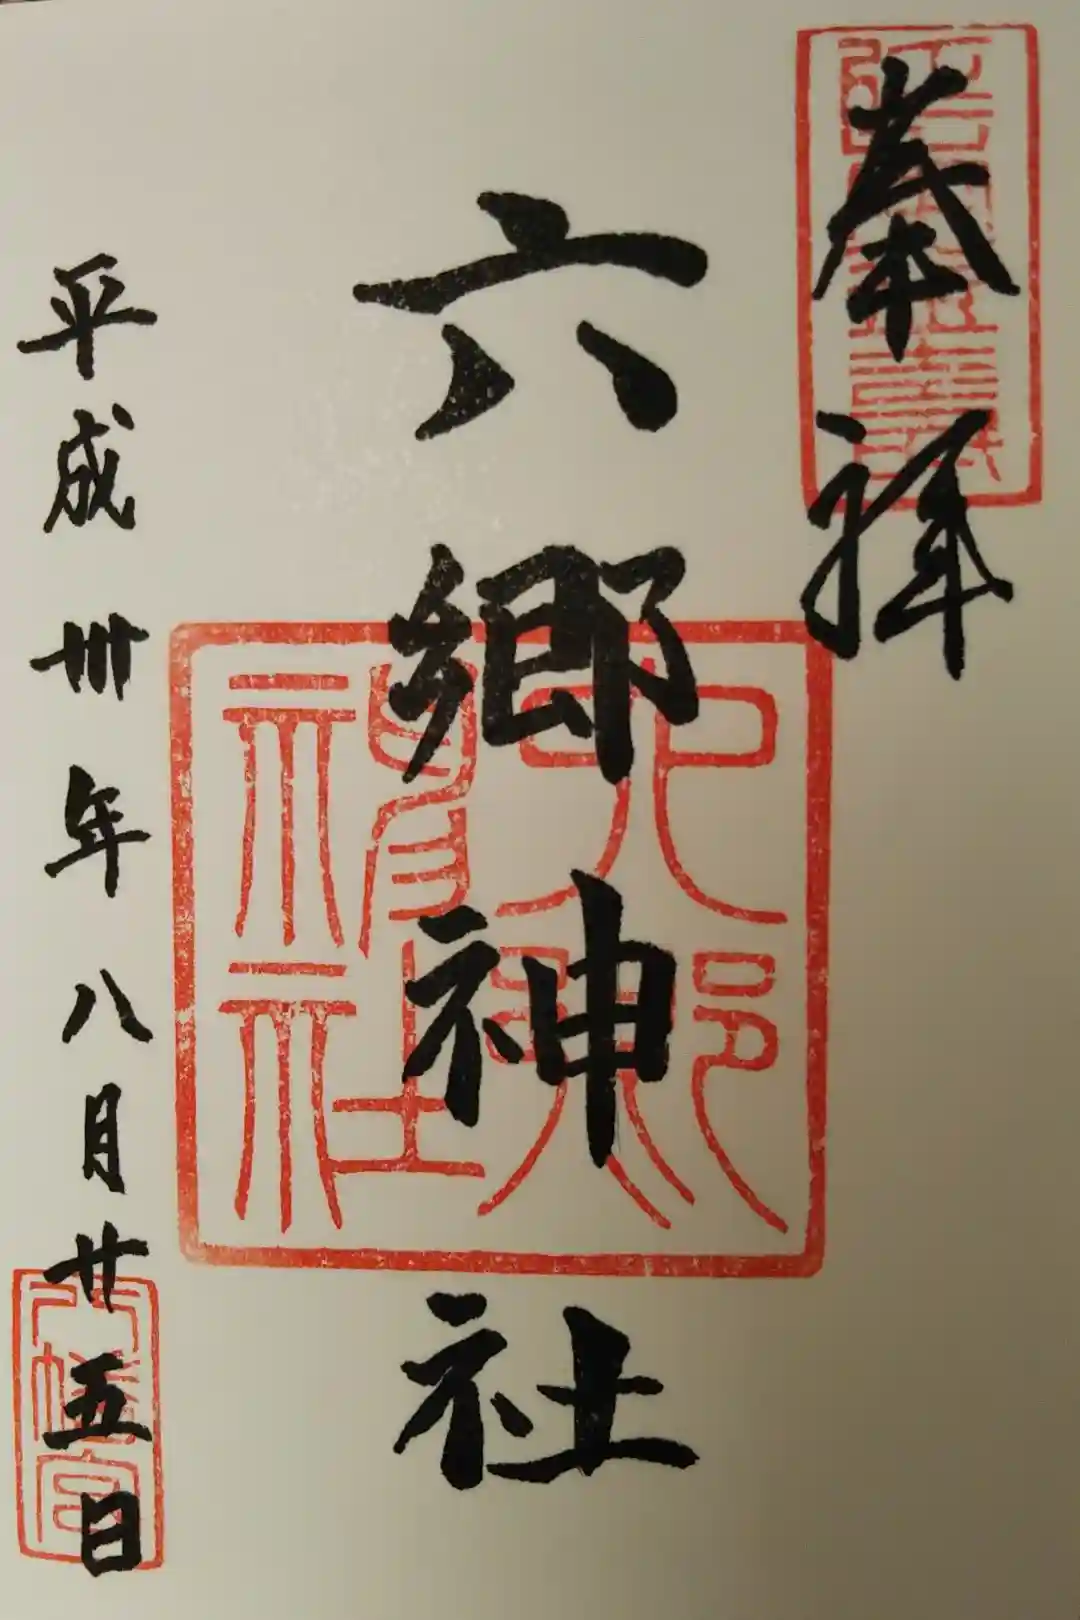 奉拝
六郷神社
平成卅年八月廿五日
六郷神社
八幡宮